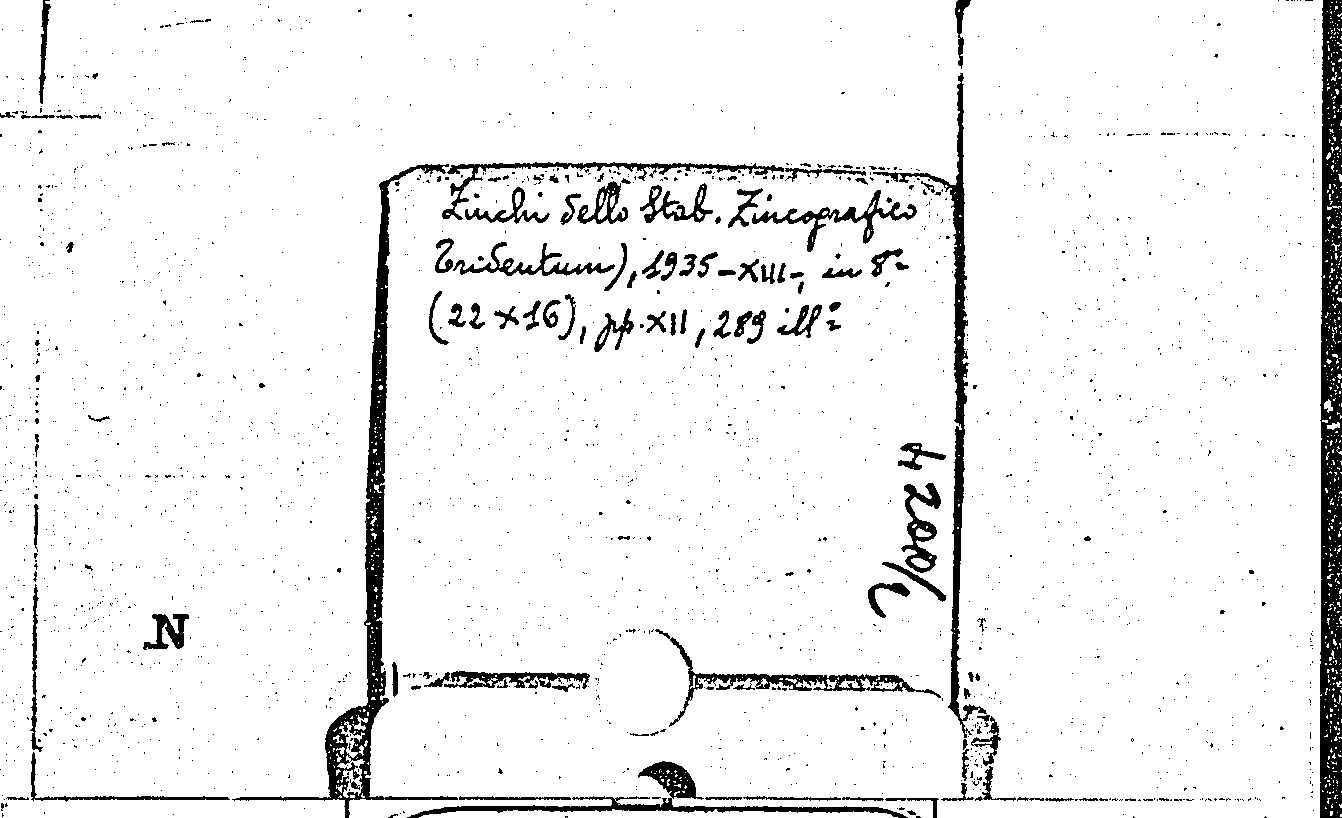 Zinchi dello Stab. Zincografico
Tridentum), 1935-XIII-, in 8º
(22 x 16), pp. XII, 289 illº
N